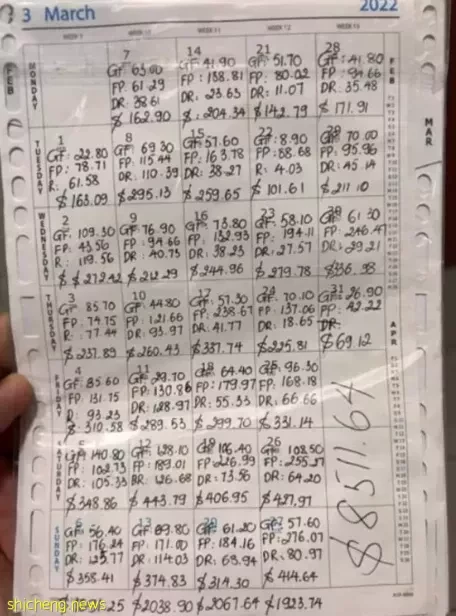 3 March 2022
WEEK 9 WEEK 10 WEEK 11 WEEK 12 WEEK 13
MONDAY
7
GF: 63.00
FP: 61.29
DR: 38.61
$ 162.90
14
GF: 41.90
FP: 138.81
DR: 23.63
$ 204.34
21
GF: 51.70
FP: 80.02
DR: 11.07
$ 142.79
28
GF: 41.80
FP: 94.66
DR: 35.48
$ 171.91
TUESDAY
1
GF: 22.80
FP: 78.71
R: 61.58
$ 163.09
8
GF: 69.30
FP: 115.44
DR: 110.39
$ 295.13
15
GF: 57.60
FP: 163.78
DR: 38.27
$ 259.65
22
GF: 8.90
FP: 88.68
R: 4.03
$ 101.61
29
GF: 70.00
FP: 95.96
DR: 45.14
$ 211.10
WEDNESDAY
2
GF: 109.30
FP: 43.56
R: 119.56
$ 272.42
9
GF: 76.90
FP: 94.66
DR: 40.73
$ 212.29
16
GF: 73.80
FP: 132.93
DR: 38.23
$ 244.96
23
GF: 58.10
FP: 194.11
DR: 27.57
$ 279.78
30
GF: 61.30
FP: 246.47
DR: 29.21
$ 336.98
THURSDAY
3
GF: 85.70
FP: 74.75
R: 77.44
$ 237.89
10
GF: 44.80
FP: 121.66
DR: 93.97
$ 260.43
17
GF: 57.30
FP: 238.67
DR: 41.77
$ 337.74
24
GF: 70.10
FP: 137.06
DR: 18.65
$ 225.81
31
GF: 26.90
FP: 42.22
DR:
$ 69.12
FRIDAY
4
GF: 85.60
FP: 131.75
R: 93.23
$ 310.58
11
GF: 29.70
FP: 130.86
DR: 128.97
$ 289.53
18
GF: 64.40
FP: 179.97
DR: 55.33
$ 299.70
25
GF: 96.30
FP: 168.18
DR: 66.66
$ 331.14
SATURDAY
5
GF: 140.80
FP: 102.73
DR: 105.33
$ 348.86
12
GF: 128.10
FP: 189.01
DR: 126.68
$ 443.79
19
GF: 106.40
FP: 226.99
DR: 73.56
$ 406.95
26
GF: 108.50
FP: 255.27
DR: 64.20
$ 427.97
SUNDAY
6
GF: 56.40
FP: 176.24
DR: 125.77
$ 358.41
13
GF: 89.80
FP: 171.00
DR: 114.03
$ 374.83
20
GF: 61.20
FP: 184.16
DR: 68.94
$ 314.30
27
GF: 57.60
FP: 276.07
DR: 80.97
$ 414.64
$2038.90 $2067.64 $1923.74
$8511.64
FEB
FEB
MAR
APR
shicheng.news